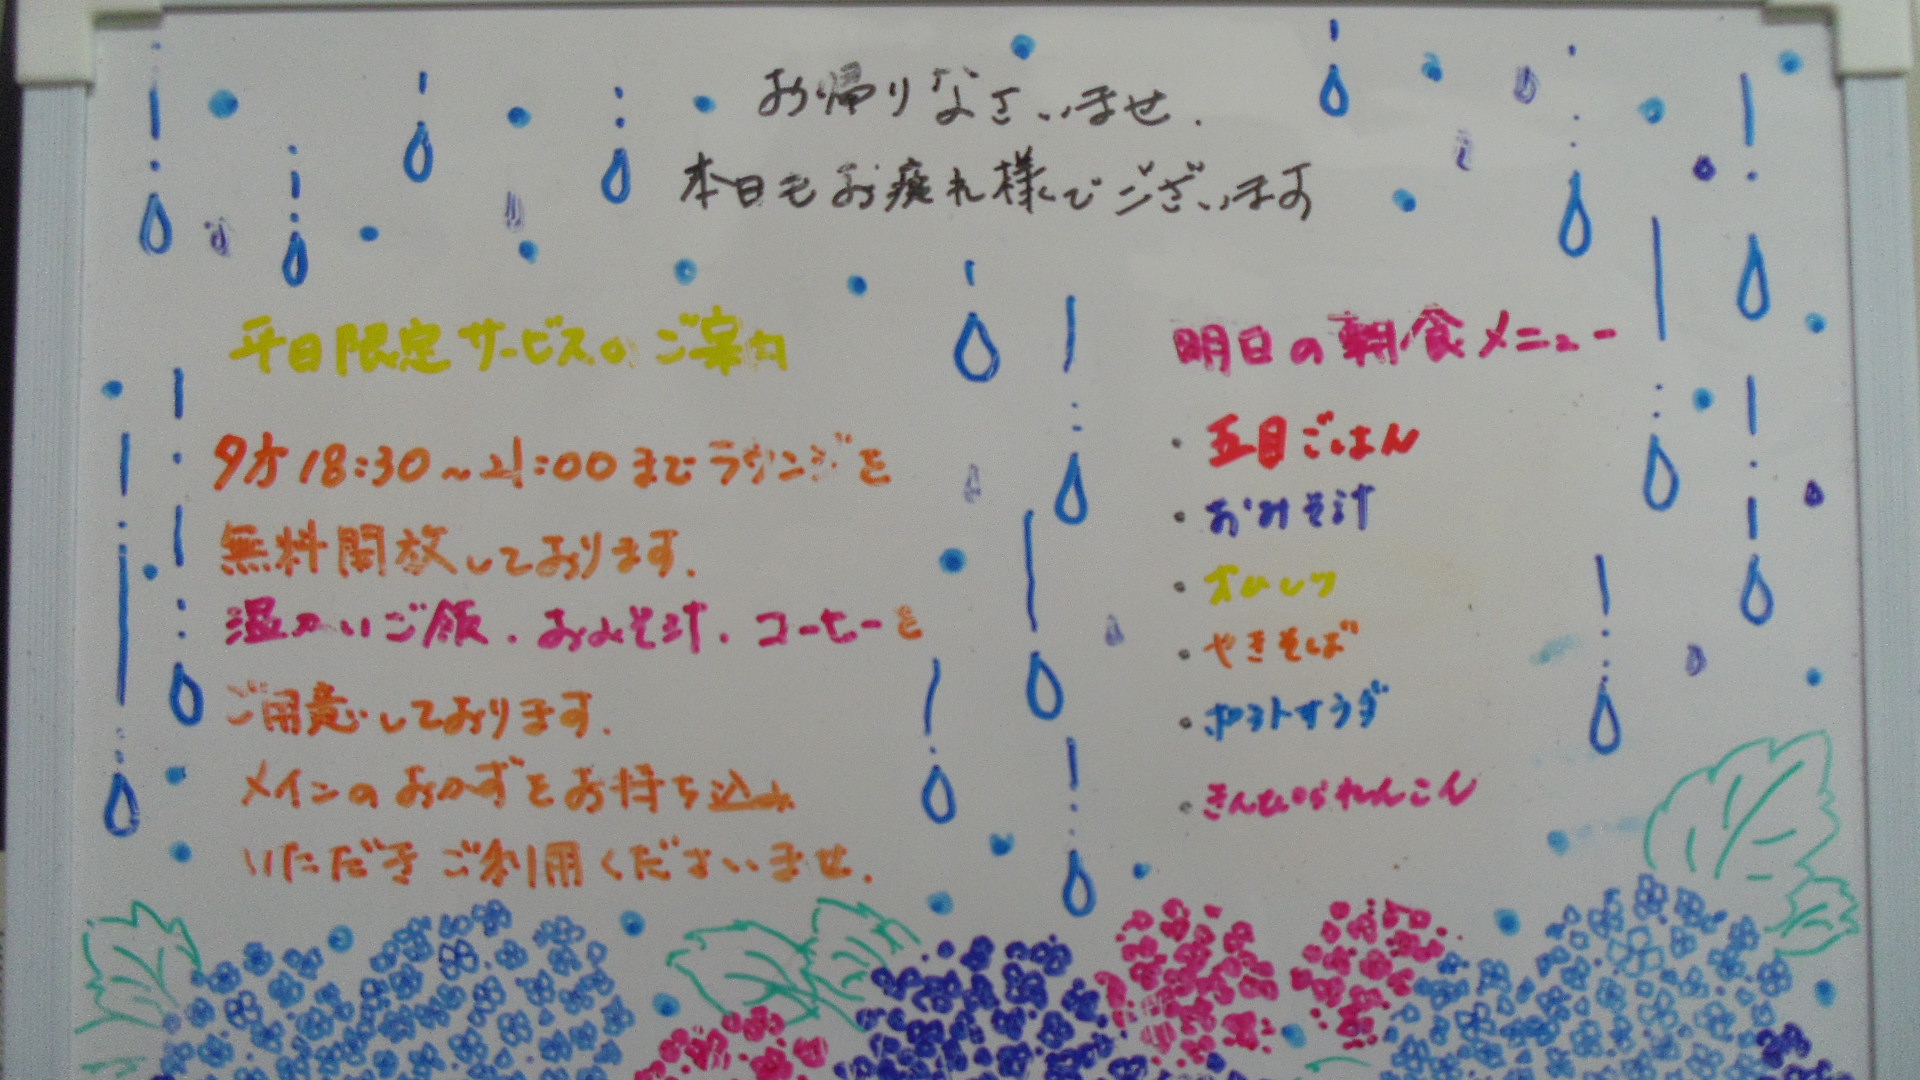 お帰りなさいませ.
本日もお疲れ様でございます
平日限定サービスのご案内
夕方18:30～21:00までラウンジを
無料開放しております.
温かいご飯.おみそ汁.コーヒーを
ご用意しております.
メインのおかずをお持ち込み
いただきご利用くださいませ.
明日の朝食メニュー
・五目ごはん
・おみそ汁
・オムレツ
・やきそば
・ポテトサラダ
・きんぴられんこん